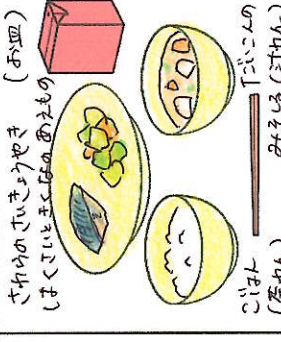 さわらのさいきょうやき (お皿)
はくさいときくなのあえもの
ごはん
(茶わん)
だいこんの
みそしる (汁わん)